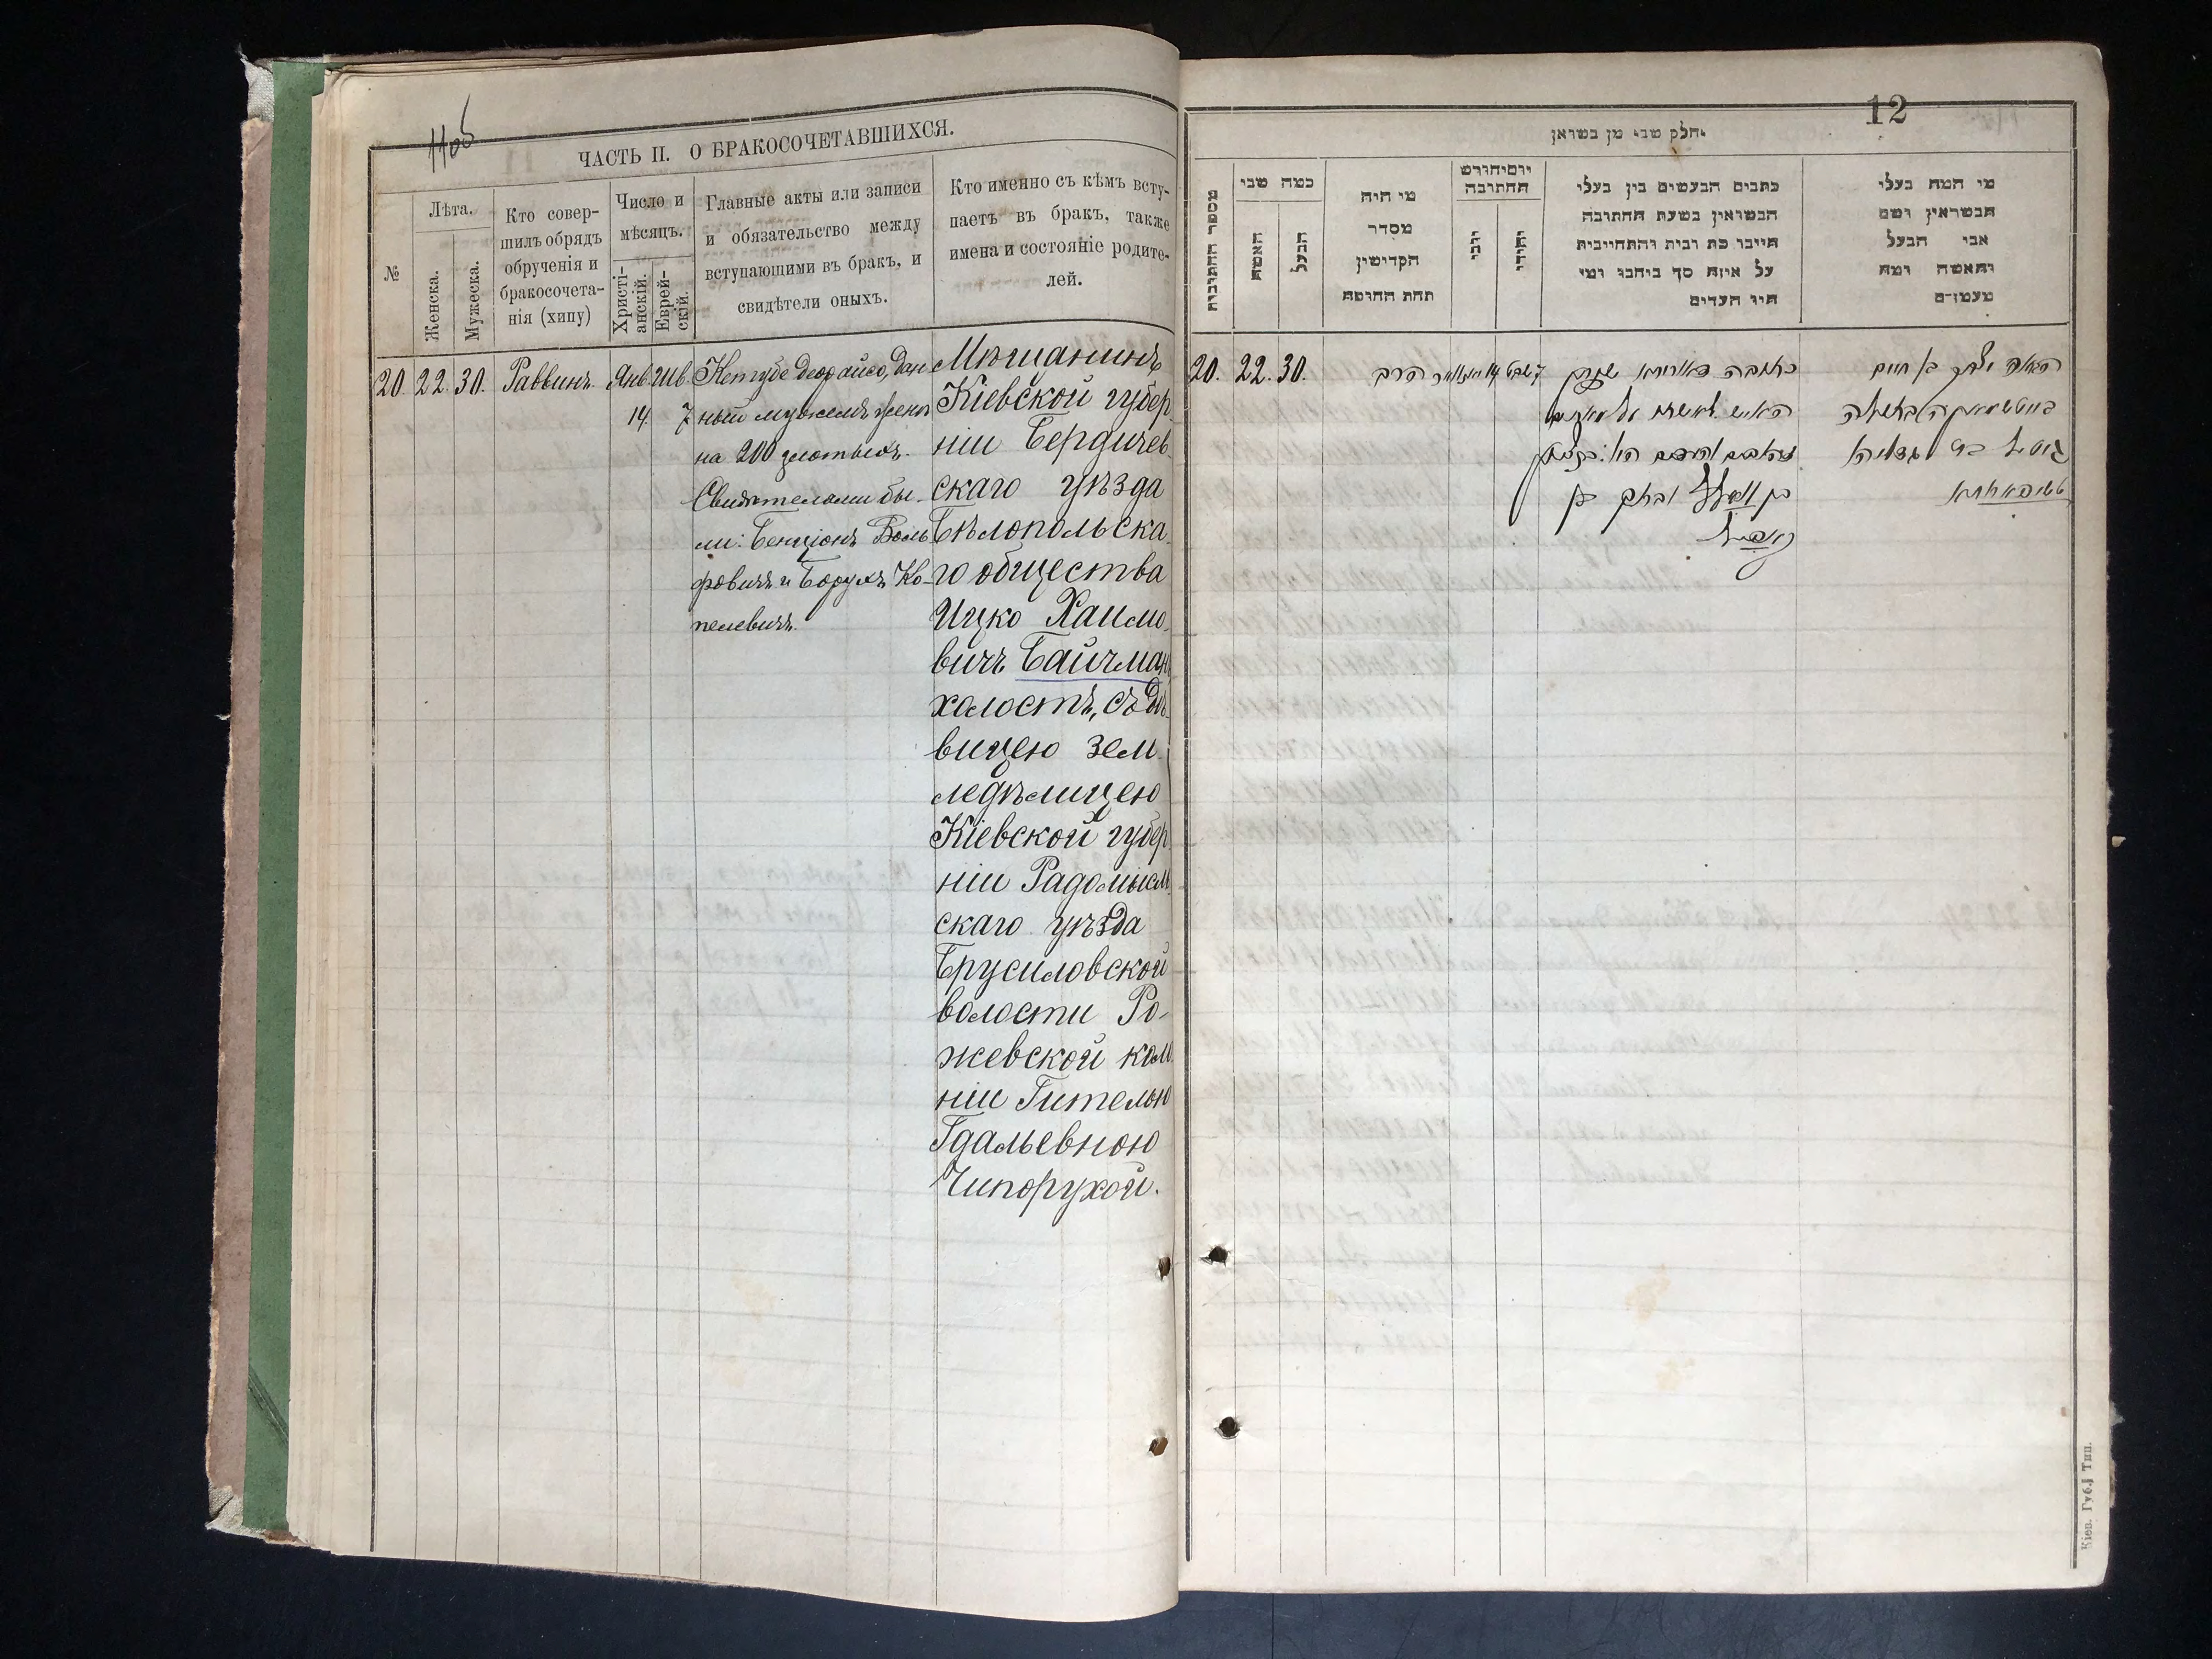 11об
ЧАСТЬ II. О БРАКОСОЧЕТАВШИХСЯ.
№
Лѣта.
Женска.
Мужеска.
Кто совер-
шилъ обрядъ
обрученія и
бракосочета-
нія (хипу)
Число и
мѣсяцъ.
Христі-
анскій.
Еврей-
скій.
Главные акты или записи
и обязательство между
вступающими въ бракъ, и
свидѣтели оныхъ.
Кто именно съ кѣмъ всту-
паетъ въ бракъ, также
имена и состояніе родите-
лей.
20. 22. 30. Раввинъ. Янв. Шв.
14. 7
Кетубе деорайсо, дан
ный мужемъ жене
на 200 злотыхъ.
Свидѣтелями бы-
ли: Бенціонъ Воль
фовичъ и Борухъ Ко-
пелевичъ.
Мѣщанинъ
Кіевской губер
ніи Бердичев
скаго уѣзда
Бѣлопольска
го общества
Ицко Хаимо
вичъ Байчман
холостъ, съ дѣ
вицею зем
ледѣлицею
Кіевской губер
ніи Радомысль
скаго уѣзда
Брусиловской
волости Ро-
жевской коло
ніи Гителью
Гдальевною
Чипорухой.
12
חלק שני מן נשואין
מספר החתונות
כמה שני
האשה
הבעל
מי היה
מסדר
הקדישין
תחת החופה
יום וחודש
החתונה
יוני
יהודי
כתבים הנעשים בין בעלי
הנשואין בשעת החתונה
היינו כת ובית והתחייבות
על איזה סך ביחבו ומי
היו העדים
מי המה בעלי
הנשואין ושם
אבי הבעל
והאשה ומה
מעמדם
20. 22. 30.
הרב
14 יאנואר
7 שבט
בן חיים
גיטל בת גדליה
Кіев. Губ. Тип.